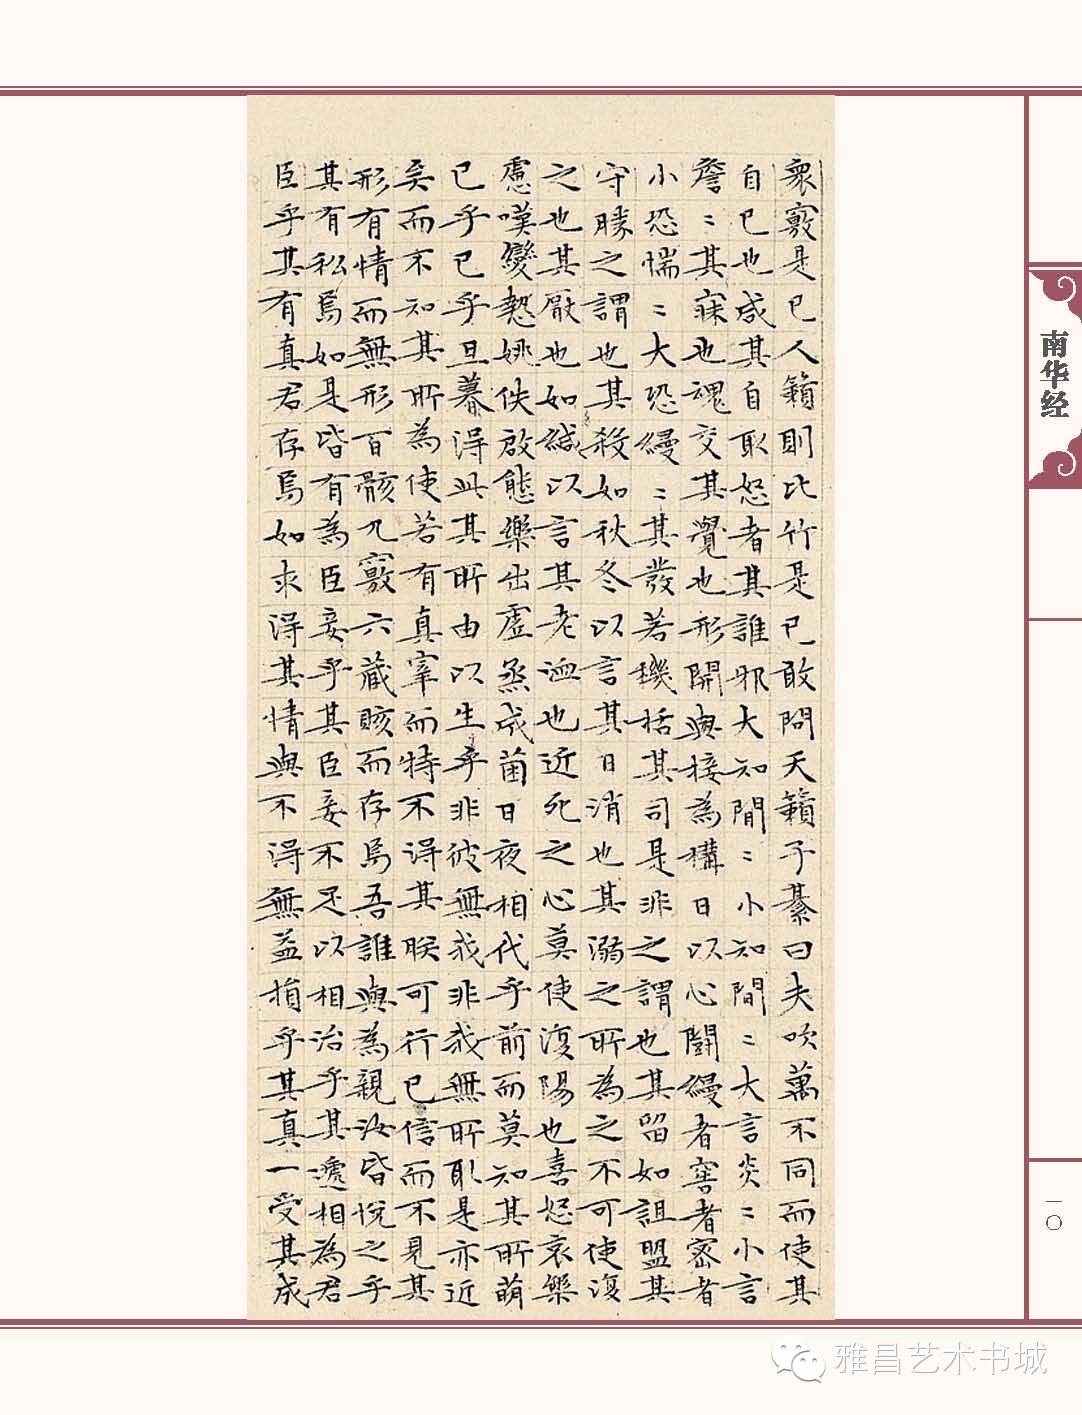 衆竅是已人籟則比竹是已敢問天籟子綦曰夫吹萬不同而使其
自已也咸其自取怒者其誰邪大知間〻小知間〻大言炎〻小言
詹〻其寐也魂交其覺也形開與接為構日以心鬭縵者窖者密者
小恐惴〻大恐縵〻其發若機栝其司是非之謂也其留如詛盟其
守勝之謂也其殺如秋冬以言其日消也其溺之所為之不可使復
之也其厭也如緘以言其老洫也近死之心莫使復陽也喜怒哀樂
慮嘆變慹姚佚啟態樂出虛蒸成菌日夜相代乎前而莫知其所萌
已乎已乎旦暮得此其所由以生乎非彼無我非我無所取是亦近
矣而不知其所為使若有真宰而特不得其眹可行已信而不見其
形有情而無形百骸九竅六藏賅而存焉吾誰與為親汝皆悅之乎
其有私焉如是皆有為臣妾乎其臣妾不足以相治乎其遞相為君
臣乎其有真君存焉如求得其情與不得無益損乎其真一受其成
南华经
一〇
雅昌艺术书城